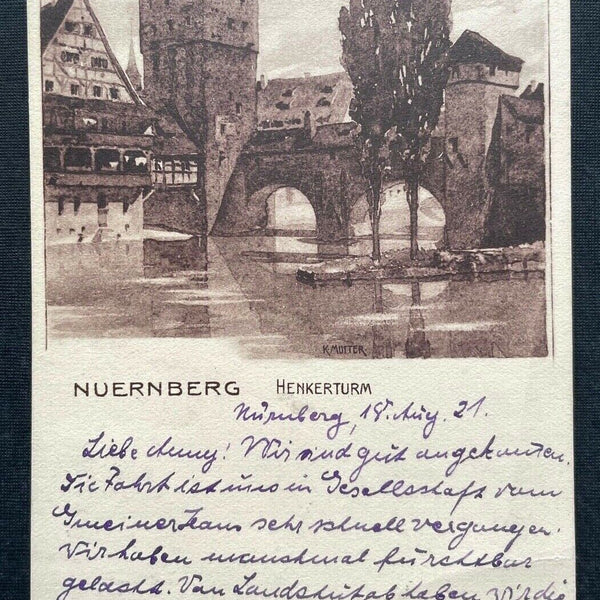 K. MUTTER
NUERNBERG HENKERTURM
Nürnberg, 18. Aug. 21.
Liebe Anny! Wir sind gut angekomen.
Die Fahrt ist uns in Gesellschaft vom
Gmeiner Hans sehr schnell vergangen.
Wir haben manchmal furchtbar
gelacht. Von Landshut ab haben wir die